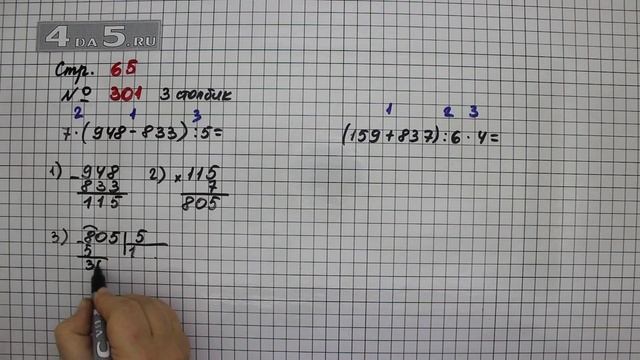 4DA5.RU
Стр. 65
№ 301 3 столбик
2 1 3
7·(948-833):5=
1) 948
- 833
115
2) 115
× 7
805
3) 805 5
- 5 1
3
1 2 3
(159+837):6·4=